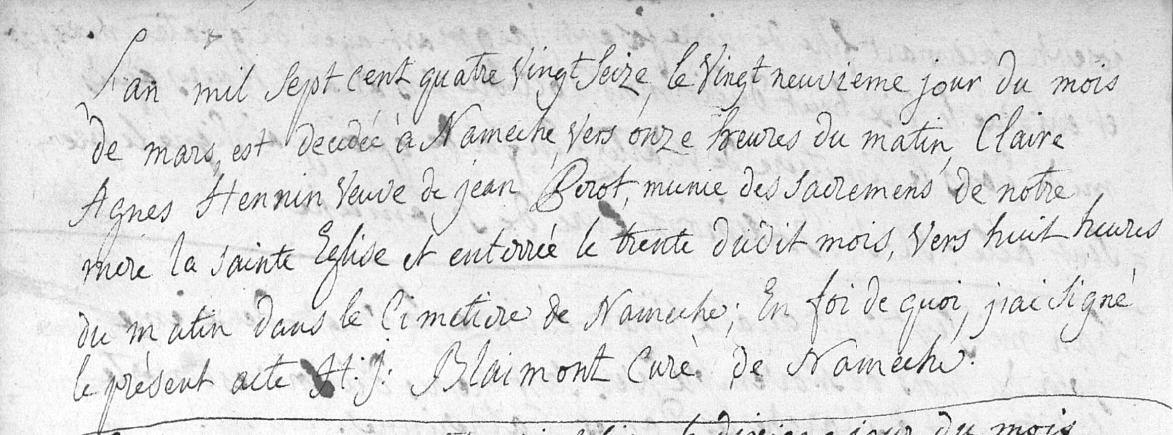 L'an mil sept cent quatre vingt seize, le vingt neuvieme jour du mois
de mars, est decedée à Nameche, vers onze heures du matin, Claire
Agnes Hennin veuve de jean Pirot, munie des sacremens de notre
mere la sainte Eglise et enterrée le trente dudit mois, vers huit heures
du matin dans le Cimetiere de Nameche; En foi de quoi, j'ai signé
le présent acte H: J: Blaimont Curé de Nameche.
jour du mois